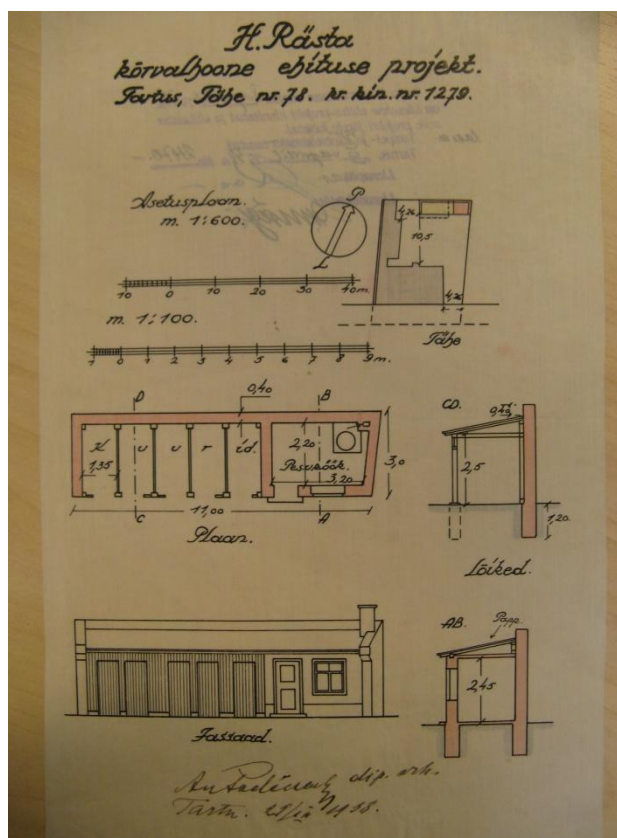 H. Rästa
kõrvalhoone ehituse projekt.
Tartus, Tähe nr. 78. kr. kin. nr. 1279.
Asetusplaan.
m. 1:600.
P
L
4,26
10,5
4,26
Tähe
10 0 10 20 30 40 m.
m. 1:100.
1 0 1 2 3 4 5 6 7 8 9 m.
D
0,40
B
K u u r id.
1,35
2,20
Pesuköök.
3,20
3,0
11,00
C
A
Plaan.
CD.
0,40
2,5
1,20
Lõiked.
AB.
Papp
2,45
Fassaad.
dip. arh.
Tartu.